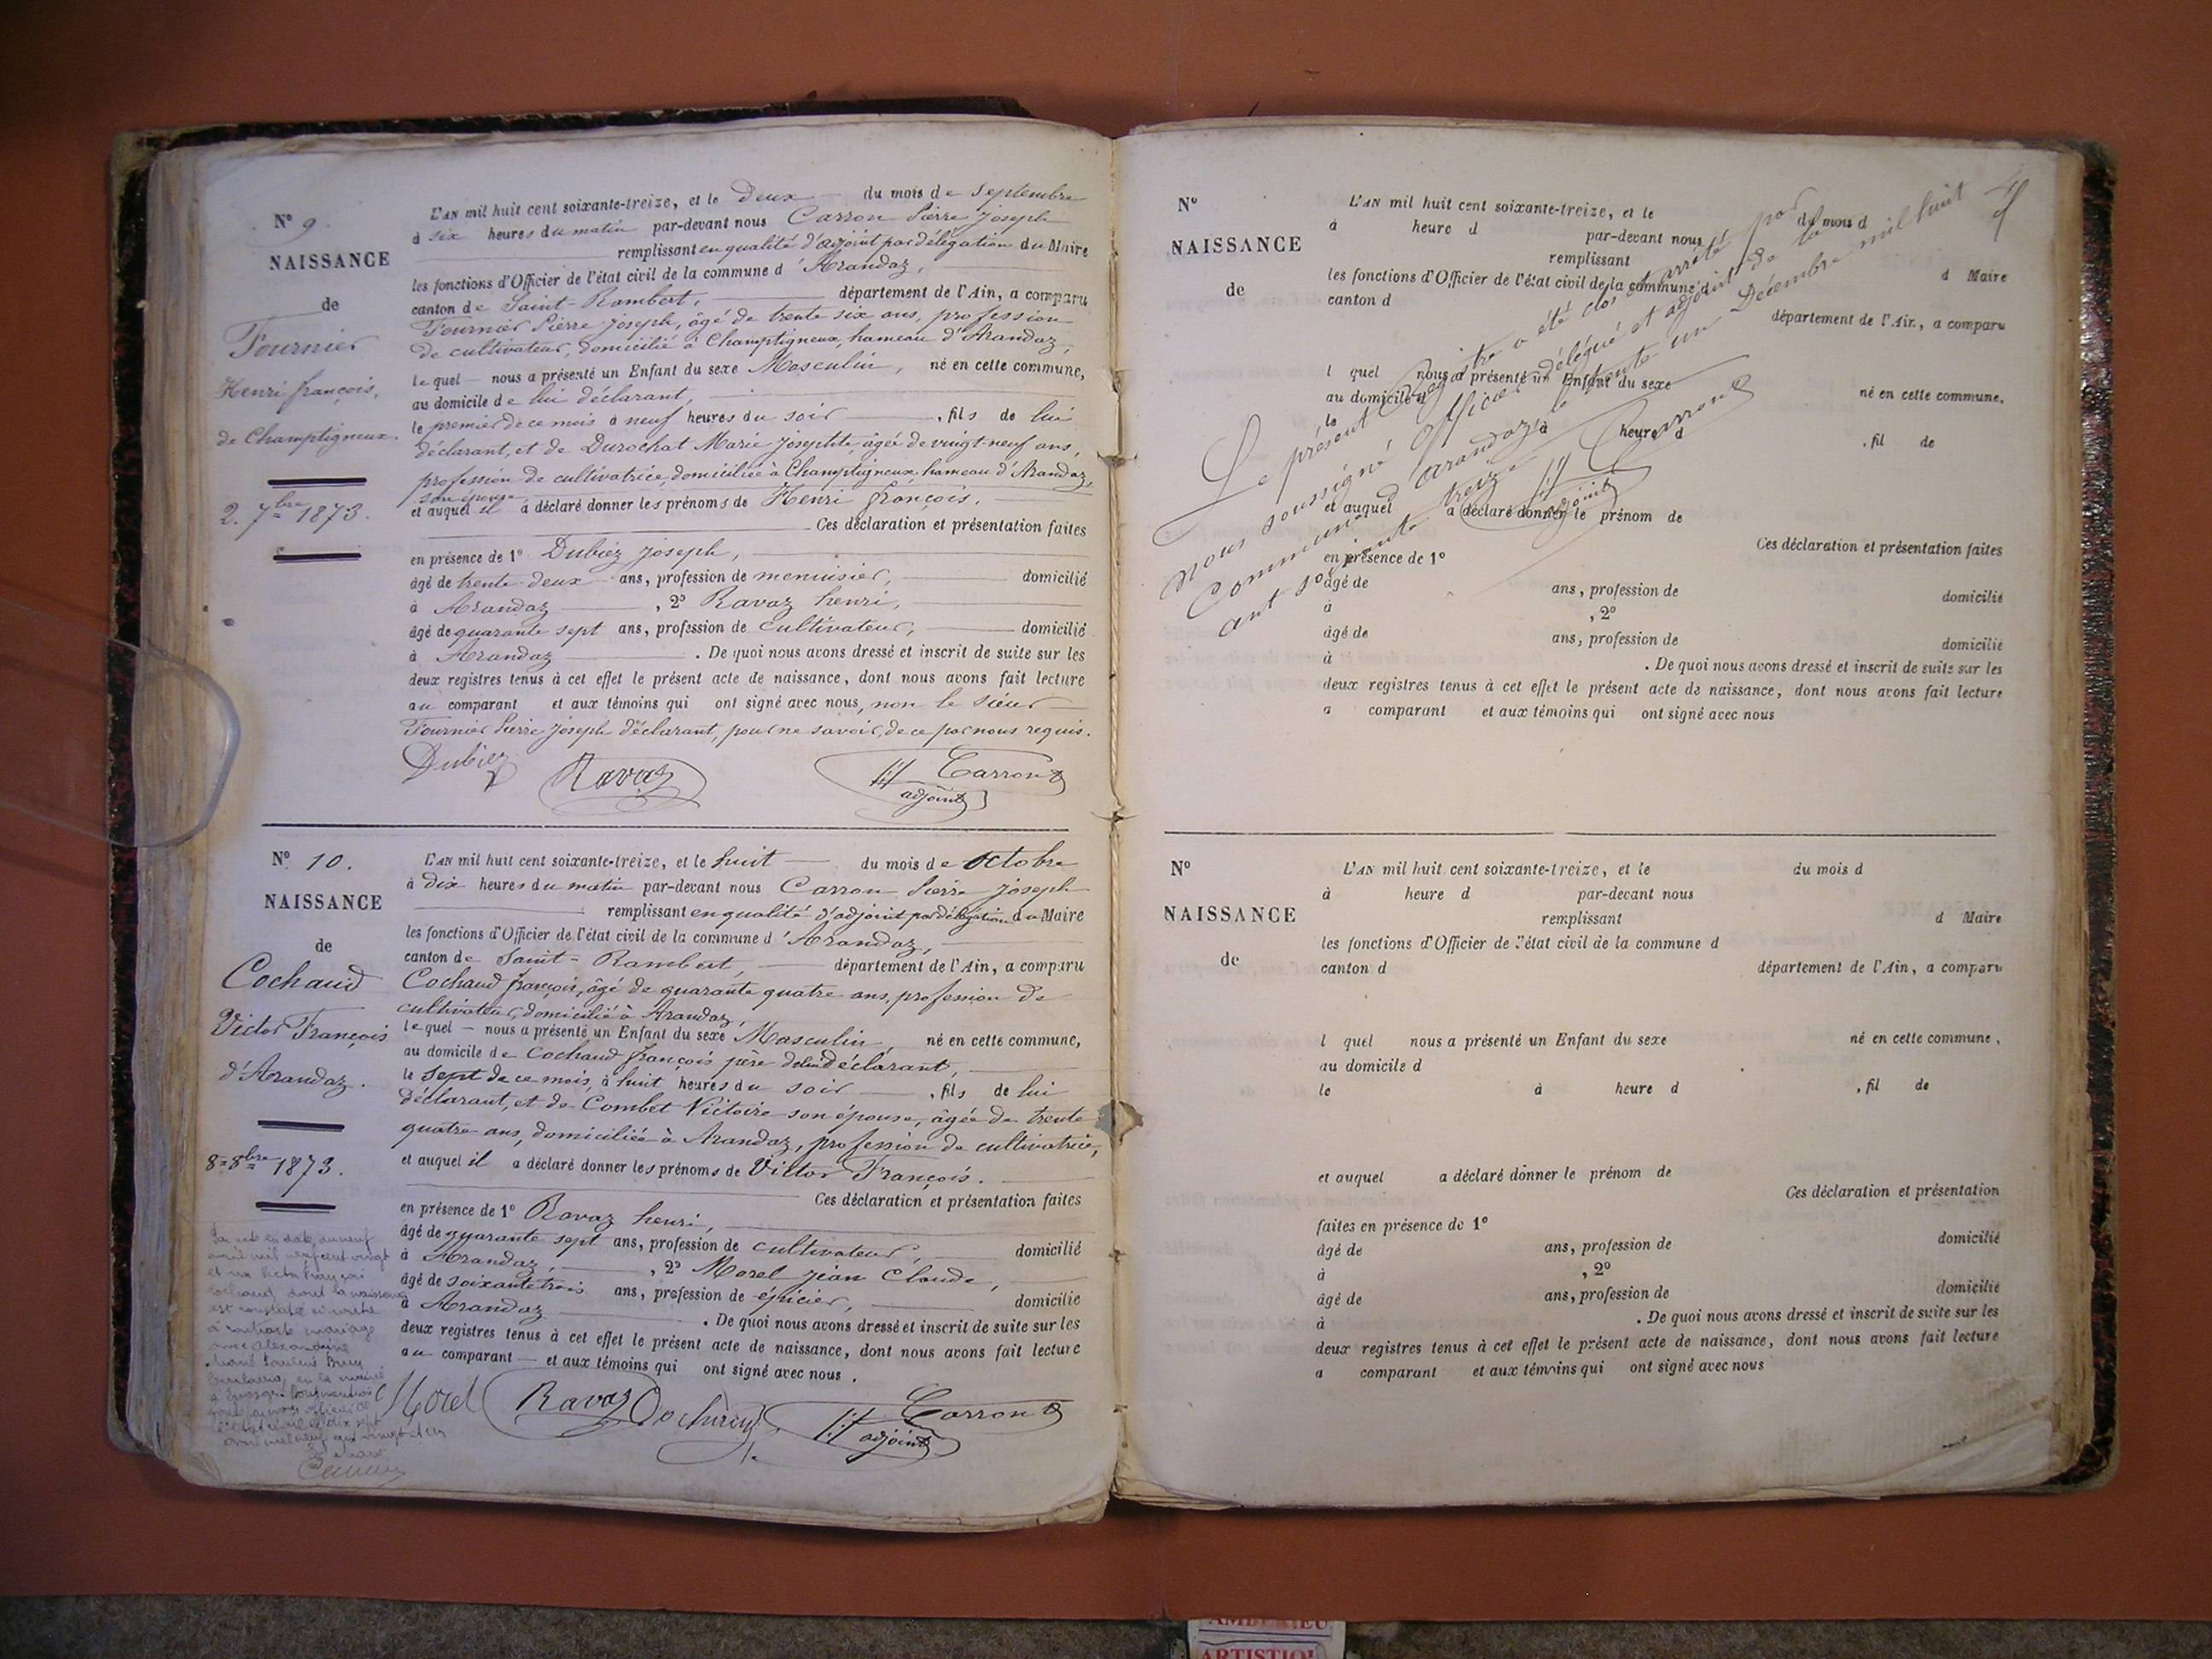 N° 9.
NAISSANCE
de
Fournier
Henri françois,
de Champtigneux.
2. 7bre 1873.
L'AN mil huit cent soixante-treize, et le Deux du mois de Septembre
à six heures du matin par-devant nous Carron Pierre Joseph
remplissant en qualité d'adjoint par délégation du Maire
les fonctions d'Officier de l'état civil de la commune d'Arandaz,
canton de Saint-Rambert, département de l'Ain, a comparu
Fournier Pierre Joseph, âgé de trente six ans, profession
de cultivateur, domicilié à Champtigneux, hameau d'Arandaz,
lequel nous a présenté un Enfant du sexe Masculin, né en cette commune,
au domicile de lui déclarant,
le premier de ce mois à neuf heures du soir, fils de lui
déclarant, et de Durochat Marie Josephte, âgée de vingt-neuf ans,
profession de cultivatrice, domiciliée à Champtigneux hameau d'Arandaz,
son épouse
et auquel il a déclaré donner les prénoms de Henri françois.
Ces déclaration et présentation faites
en présence de 1° Dubiez Joseph,
âgé de trente deux ans, profession de menuisier, domicilié
à Arandaz, 2° Ravaz henri,
âgé de quarante sept ans, profession de cultivateur, domicilié
à Arandaz. De quoi nous avons dressé et inscrit de suite sur les
deux registres tenus à cet effet le présent acte de naissance, dont nous avons fait lecture
au comparant et aux témoins qui ont signé avec nous, non le sieur
Fournier Pierre Joseph déclarant, pour ne savoir, de ce par nous requis.
Dubiez Ravaz Carron
adjoint
N° 10.
NAISSANCE
de
Cochaud
Victor François
d'Arandaz.
8 = 8bre 1873.
L'AN mil huit cent soixante-treize, et le huit du mois de Octobre
à Dix heures du matin par-devant nous Carron Pierre Joseph
remplissant en qualité d'adjoint par délégation du Maire
les fonctions d'Officier de l'état civil de la commune d'Arandaz,
canton de Saint-Rambert, département de l'Ain, a comparu
Cochaud françois, âgé de quarante quatre ans, profession de
cultivateur, domicilié à Arandaz,
lequel nous a présenté un Enfant du sexe Masculin, né en cette commune,
au domicile de Cochaud françois père déclarant,
le sept de ce mois, à huit heures du soir, fils de lui
déclarant, et de Combet Victoire son épouse, âgée de trente
quatre ans, domiciliée à Arandaz, profession de cultivatrice,
et auquel il a déclaré donner les prénoms de Victor François.
Ces déclaration et présentation faites
en présence de 1° Ravaz henri,
âgé de quarante sept ans, profession de cultivateur, domicilié
à Arandaz, 2° Morel Jean Claude,
âgé de soixante trois ans, profession de épicier, domicilié
à Arandaz. De quoi nous avons dressé et inscrit de suite sur les
deux registres tenus à cet effet le présent acte de naissance, dont nous avons fait lecture
au comparant et aux témoins qui ont signé avec nous.
Morel Ravaz Carron
adjoint
Par acte en date du neuf
avril mil neuf cent vingt
et un Victor François
Cochaud dont la naissance
est constatée ci-contre
a contracté mariage
avec Alexandrine
N°
NAISSANCE
de
L'AN mil huit cent soixante-treize, et le du mois d
à heure d par-devant nous
remplissant d Maire
les fonctions d'Officier de l'état civil de la commune d
canton d département de l'Ain, a comparu
l quel nous a présenté un Enfant du sexe né en cette commune,
au domicile d
le à heure d , fil de
et auquel a déclaré donner le prénom de
Ces déclaration et présentation faites
en présence de 1°
âgé de ans, profession de domicilié
à , 2°
âgé de ans, profession de domicilié
à . De quoi nous avons dressé et inscrit de suite sur les
deux registres tenus à cet effet le présent acte de naissance, dont nous avons fait lecture
a comparant et aux témoins qui ont signé avec nous
Le présent Registre a été clos et arrêté par
nous soussigné officier délégué et adjoint de la
Commune d'Arandaz le trente un Décembre mil huit
cent soixante treize
Carron
adjoint
N°
NAISSANCE
de
L'AN mil huit cent soixante-treize, et le du mois d
à heure d par-devant nous
remplissant d Maire
les fonctions d'Officier de l'état civil de la commune d
canton d département de l'Ain, a comparu
l quel nous a présenté un Enfant du sexe né en cette commune,
au domicile d
le à heure d , fil de
et auquel a déclaré donner le prénom de
Ces déclaration et présentation
faites en présence de 1°
âgé de ans, profession de domicilié
à , 2°
âgé de ans, profession de domicilié
à . De quoi nous avons dressé et inscrit de suite sur les
deux registres tenus à cet effet le présent acte de naissance, dont nous avons fait lecture
a comparant et aux témoins qui ont signé avec nous